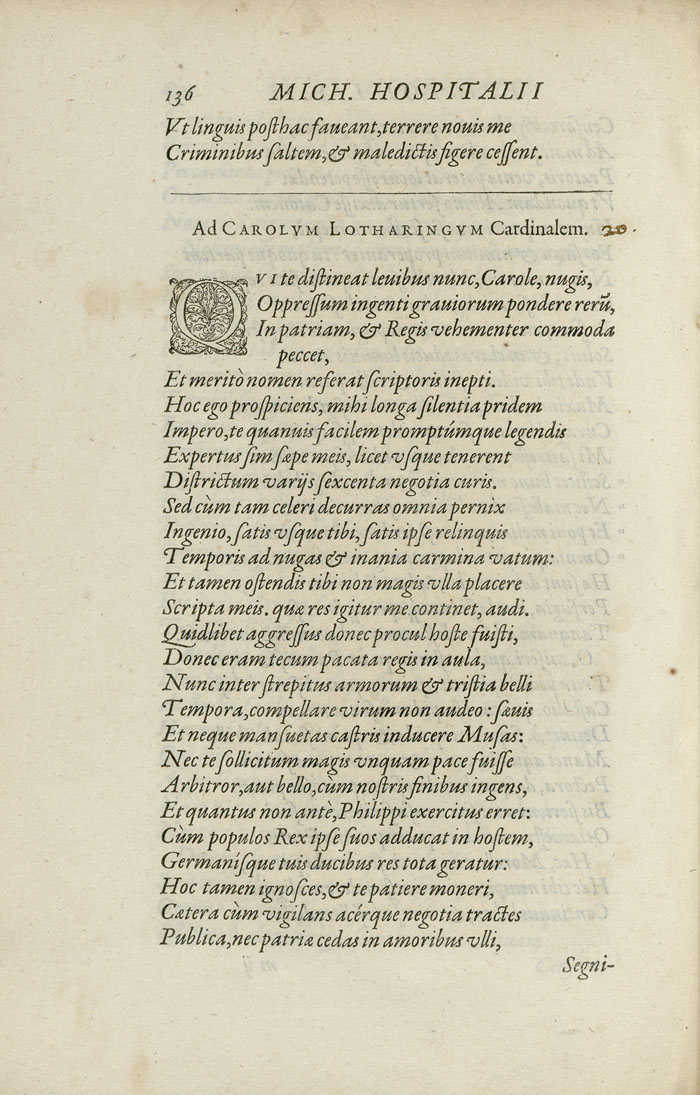 136 MICH. HOSPITALII
Vt linguis posthac faueant, terrere nouis me
Criminibus saltem, & maledictis figere cessent.
Ad CAROLVM LOTHARINGVM Cardinalem. 20.
QVI te distineat leuibus nunc, Carole, nugis,
Oppressum ingenti grauiorum pondere rerū,
In patriam, & Regis vehementer commoda
peccet,
Et meritò nomen referat scriptoris inepti.
Hoc ego prospiciens, mihi longa silentia pridem
Impero, te quanuis facilem promptúmque legendis
Expertus sim sæpe meis, licet vsque tenerent
Districtum varijs sexcenta negotia curis.
Sed cùm tam celeri decurras omnia pernix
Ingenio, satis vsque tibi, satis ipse relinquis
Temporis ad nugas & inania carmina vatum:
Et tamen ostendis tibi non magis vlla placere
Scripta meis. quæ res igitur me continet, audi.
Quidlibet aggressus donec procul hoste fuisti,
Donec eram tecum pacata regis in aula,
Nunc inter strepitus armorum & tristia belli
Tempora, compellare virum non audeo: sæuis
Et neque mansuetas castris inducere Musas:
Nec te sollicitum magis vnquam pace fuisse
Arbitror, aut bello, cùm nostris finibus ingens,
Et quantus non antè, Philippi exercitus erret:
Cùm populos Rex ipse suos adducat in hostem,
Germanísque tuis ducibus res tota geratur:
Hoc tamen ignosces, & te patiere moneri,
Cætera cùm vigilans acérque negotia tractes
Publica, nec patriæ cedas in amoribus vlli,
Segni-